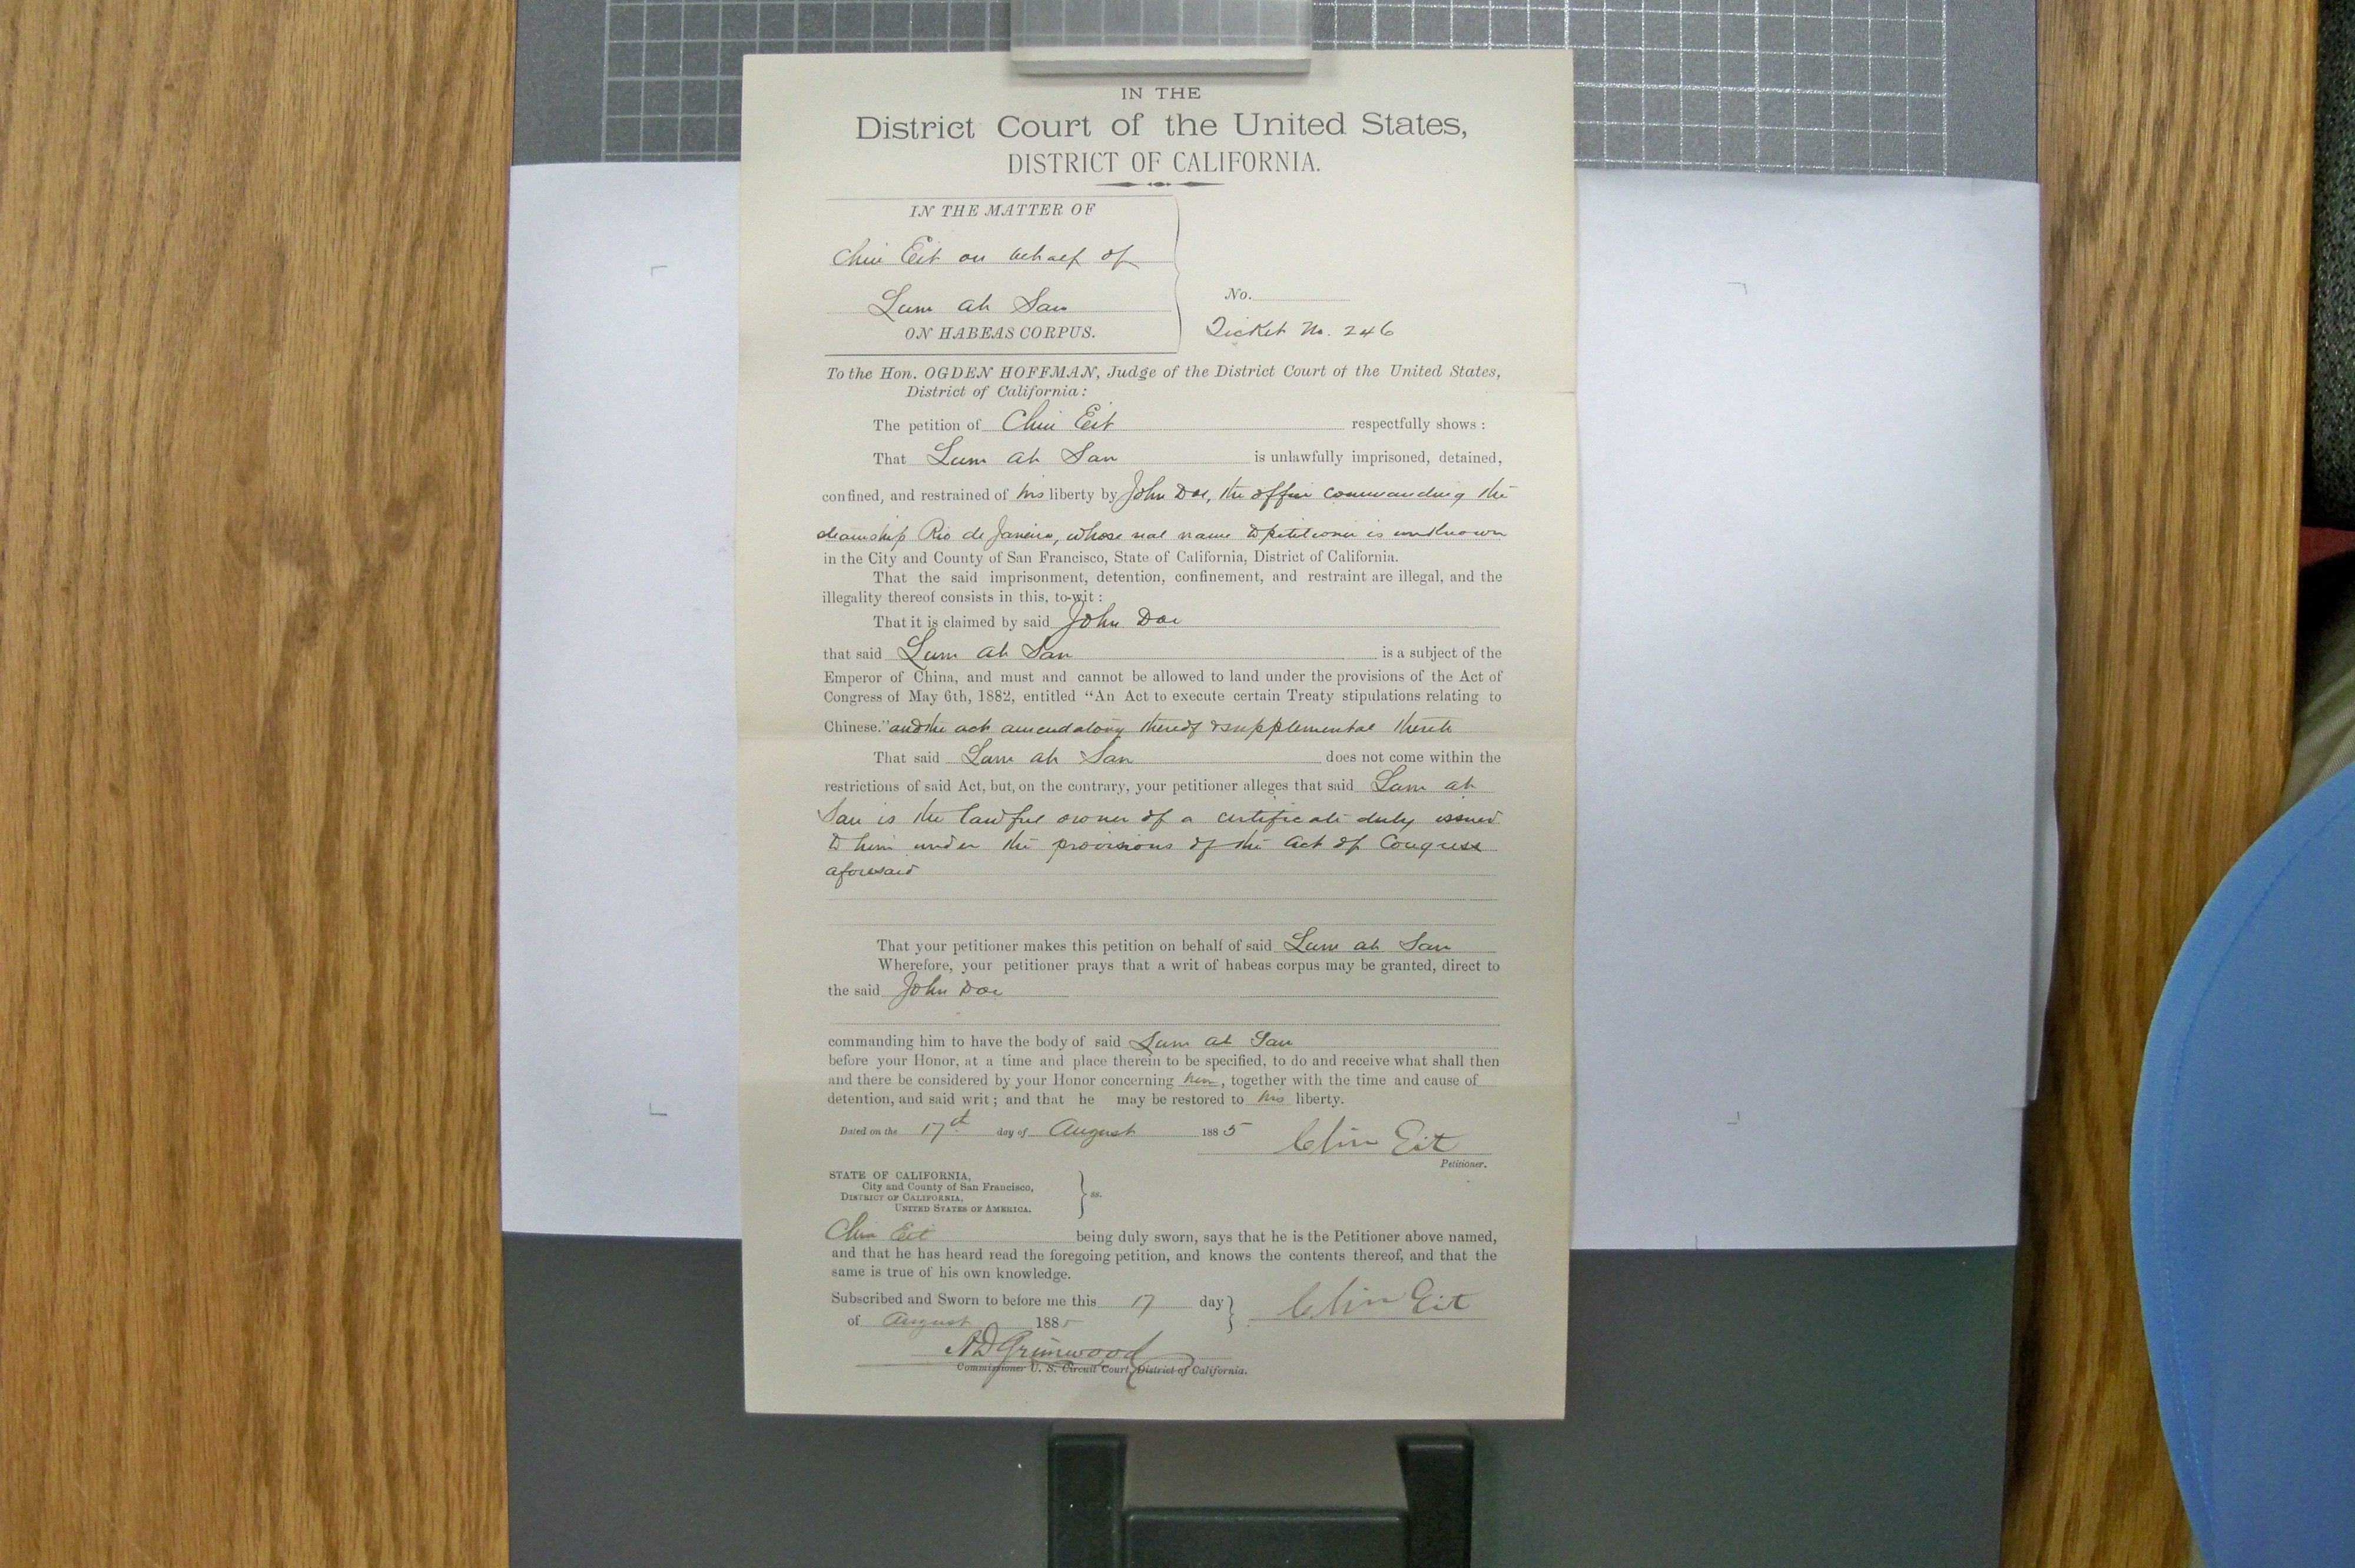 IN THE
District Court of the United States,
DISTRICT OF CALIFORNIA.
IN THE MATTER OF
Chin Eit on behalf of
Lum Ah San
ON HABEAS CORPUS.
No.
Ticket No. 246
To the Hon. OGDEN HOFFMAN, Judge of the District Court of the United States,
District of California:
The petition of Chin Eit respectfully shows:
That Lum Ah San is unlawfully imprisoned, detained,
confined, and restrained of his liberty by John Doe, the officer commanding the
steamship Rio de Janeiro, whose real name to petitioner is unknown
in the City and County of San Francisco, State of California, District of California.
That the said imprisonment, detention, confinement, and restraint are illegal, and the
illegality thereof consists in this, to-wit:
That it is claimed by said John Doe
that said Lum Ah San is a subject of the
Emperor of China, and must and cannot be allowed to land under the provisions of the Act of
Congress of May 6th, 1882, entitled "An Act to execute certain Treaty stipulations relating to
Chinese." and the act amendatory thereof & supplemental thereto
That said Lum Ah San does not come within the
restrictions of said Act, but, on the contrary, your petitioner alleges that said Lum Ah
San is the lawful owner of a certificate duly issued
to him under the provisions of the Act of Congress
aforesaid
That your petitioner makes this petition on behalf of said Lum Ah San
Wherefore, your petitioner prays that a writ of habeas corpus may be granted, direct to
the said John Doe
commanding him to have the body of said Lum Ah San
before your Honor, at a time and place therein to be specified, to do and receive what shall then
and there be considered by your Honor concerning him, together with the time and cause of
detention, and said writ; and that he may be restored to his liberty.
Dated on the 17th day of August 1885 Chin Eit
Petitioner.
STATE OF CALIFORNIA,
City and County of San Francisco,
DISTRICT OF CALIFORNIA,
UNITED STATES OF AMERICA.
ss.
Chin Eit being duly sworn, says that he is the Petitioner above named,
and that he has heard read the foregoing petition, and knows the contents thereof, and that the
same is true of his own knowledge.
Subscribed and Sworn to before me this 17 day
of August 1885
Chin Eit
Grimwood
Commissioner U. S. Circuit Court, District of California.